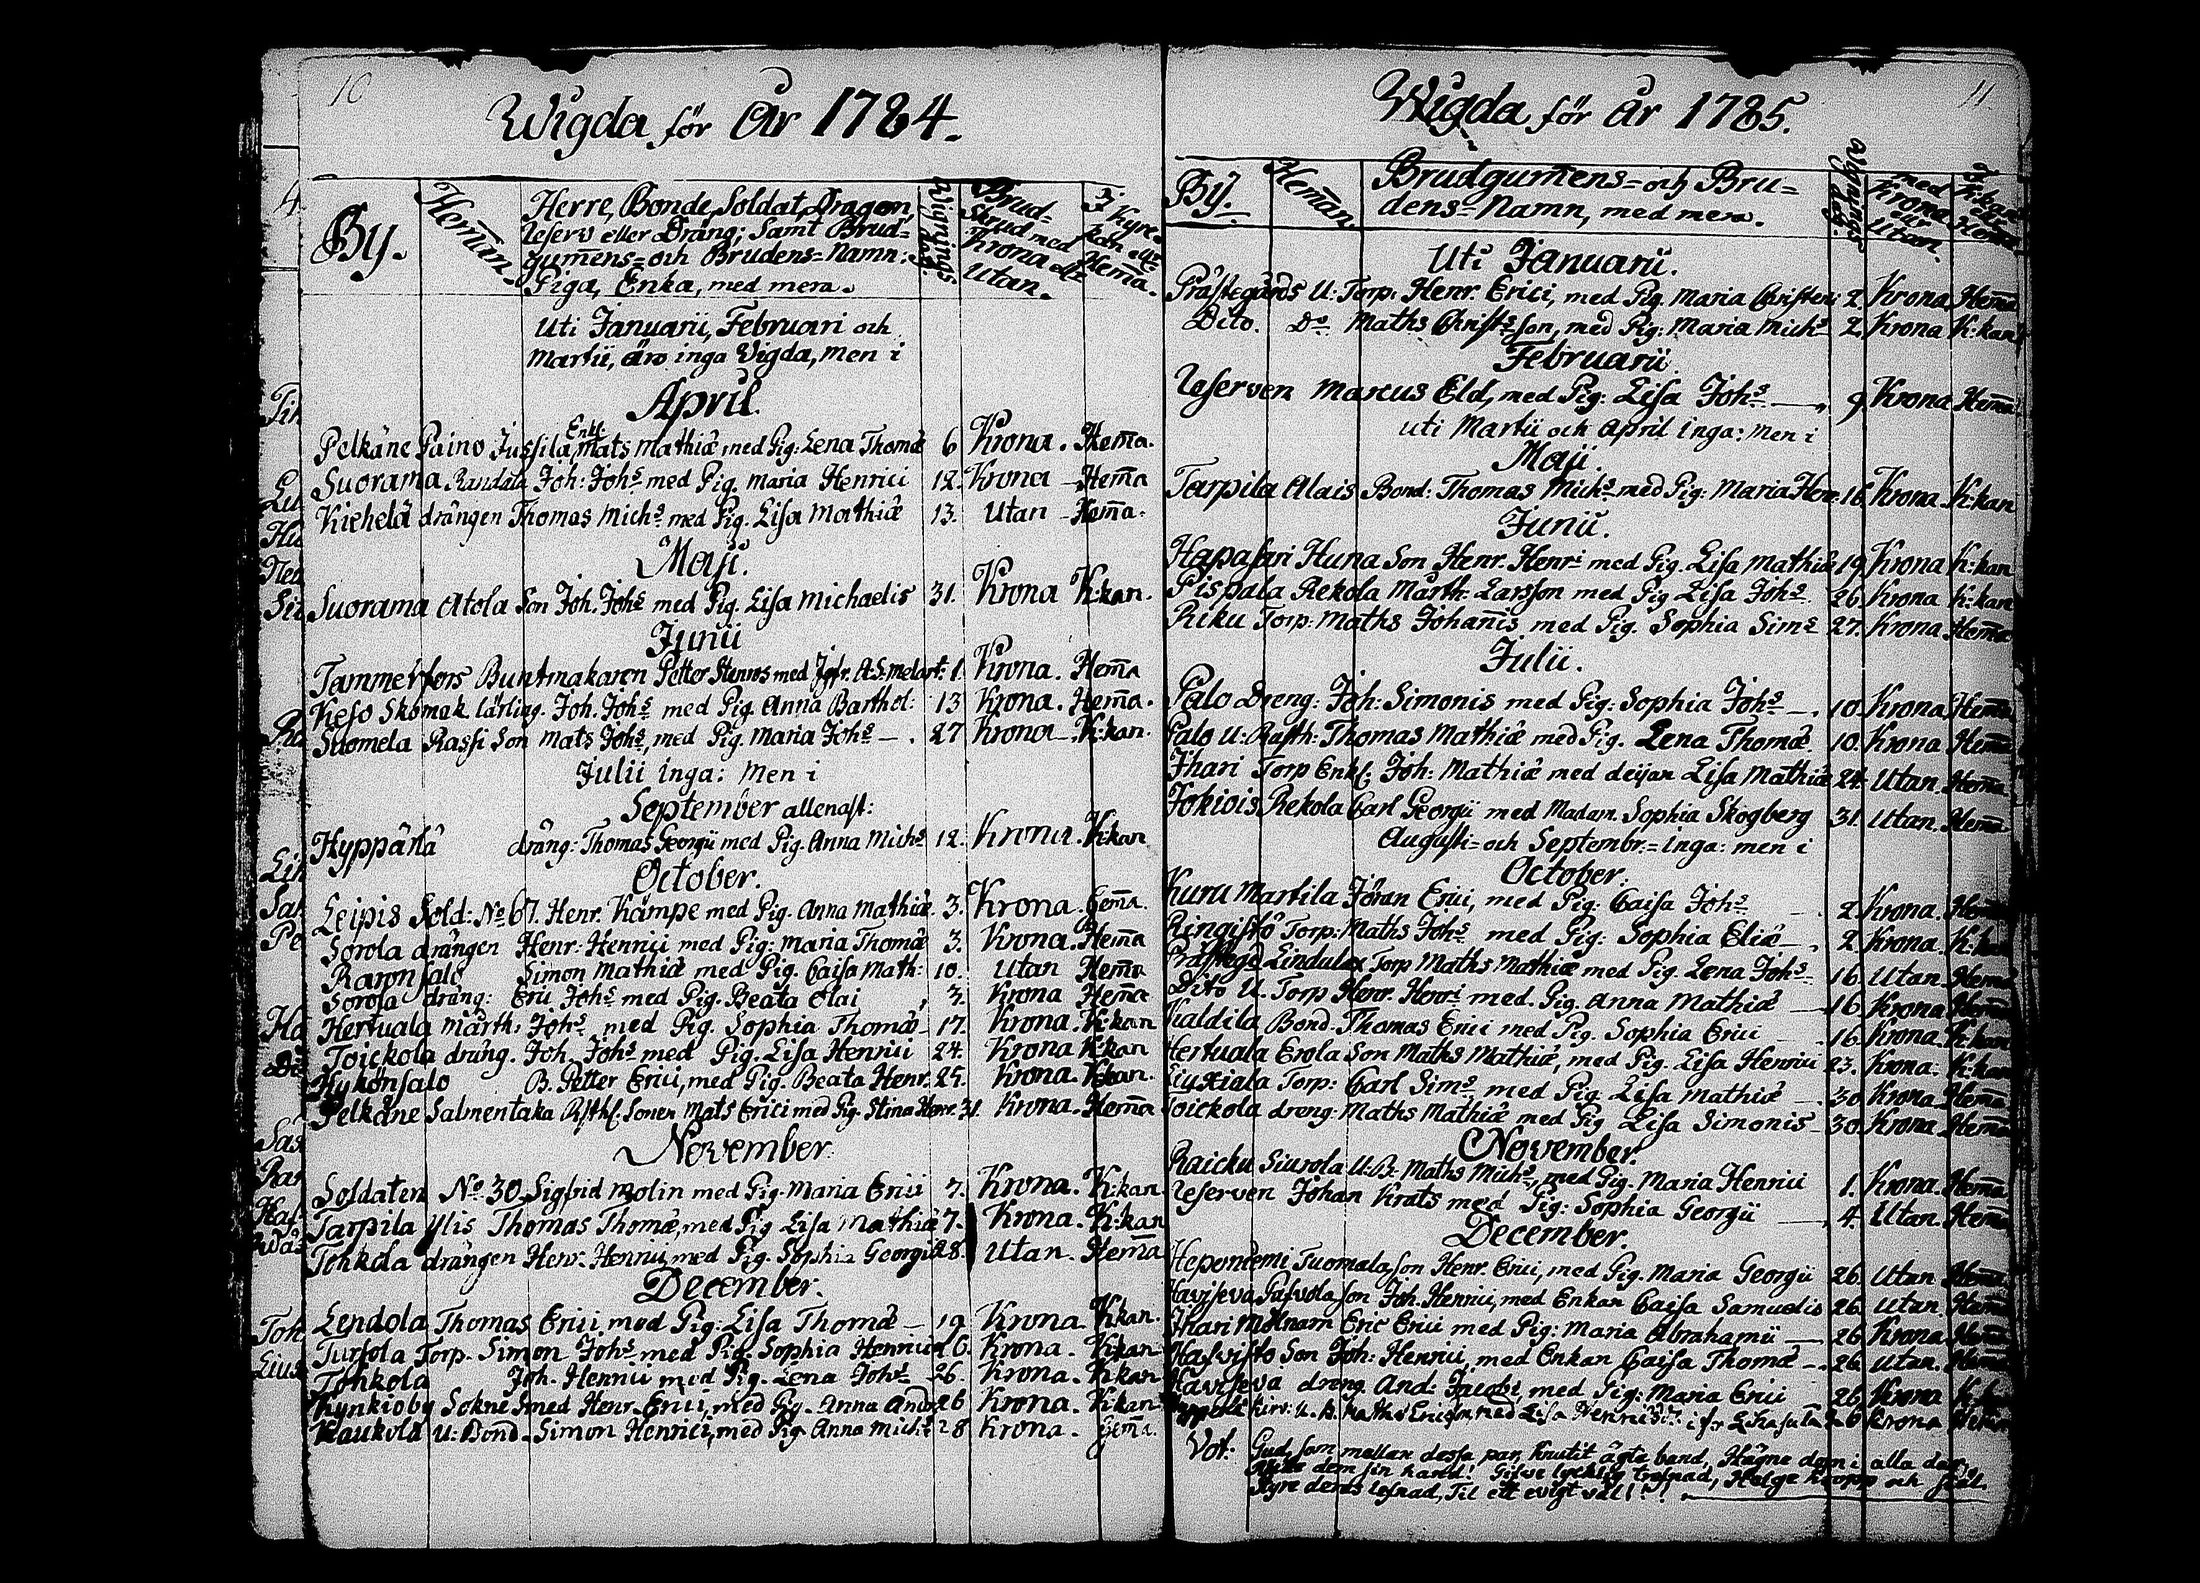 10
Wigda för År 1784.
By.
Hem̄an.
Herre, Bonde, Soldat, Dragon
Reserv eller Dräng; Samt Brud=
gum̄ens= och Brudens= Namn:
Piga, Enka, med mera.
Wignings dag.
Brud=
Skrud med
Krona ell:
Utan.
I Kyrc-
kan ell:
Hem̄a.
Uti Januarii, Februari och
Martii, äro inga Vigda, men i
April.
Enkl.
Pelkäne Paino Jussila, Mats Mathiæ med Pig: Lena Thomæ 6 Krona. Hem̄a.
Suorama Randala Joh: Johs med Pig. Maria Henrici 12. Krona Hem̄a
Kiehelä drängen Thomas Michs med Pig. Lisa Mathiæ 13. Utan Hem̄a.
Maji.
Suorama Atola Son Joh. Johs med Pig. Lisa Michaelis 31. Krona K:kan.
Junii
Tammerfors Buntmakaren Petter Stenros med Jgfr. A:S: Melart. 1. Krona. Hem̄a
Keso Skomak. lärling. Joh. Johs med Pig. Anna Barthol: 13 Krona. Hem̄a.
Suomela Rassi Son Mats Johs, med Pig. Maria Johs 27 Krona K:kan.
Julii inga: Men i
September allenast:
Hyppärlä dräng: Thomas Georgii med Pig. Anna Michs 12. Krona. K:kan
October.
Leipis Sold: No 67. Henr. Kämpe med Pig. Anna Mathiæ. 3. Krona. Hem̄a.
Sorola drängen Henr: Henrici med Pig: Maria Thomæ 3. Krona. Hem̄a
Raronsalo Simon Mathiæ med Pig. Caisa Math: 10. Utan Hem̄a
Sorola dräng: Eric Johs med Pig. Beata Olai 3. Krona Hem̄a
Hertuala Märth: Johs med Pig. Sophia Thomæ 17. Krona. K:kan
Toickola dräng. Joh. Johs med Pig. Lisa Henrici 24. Krona K:kan
Rykönsalo B. Petter Erici, med Pig. Beata Henr. 25. Krona. K:kan.
Pelkäne Salmentaka Rusth. Sonen Mats Erici med Pig. Stina Henr. 31. Krona. Hem̄a
November.
Soldaten No 30. Sigfrid Molin med Pig. Maria Erici 7. Krona. K:kan.
Tarpila Ylis Thomas Thomæ, med Pig Lisa Mathiæ 7. Krona. K:kan
Tohkola drängen Henr. Henrici, med Pig. Sophia Georgii 28. Utan. Hem̄a
December.
Lendola Thomas Erici med Pig: Lisa Thomæ 19 Krona K:kan.
Tursola Torp. Simon Johs med Pig. Sophia Henrici 26. Krona. K:kan
Tohkola Joh. Henrici med Pig. Lena Johs 26. Krona. K:kan
Kynkioby Sokne Smed Henr. Erici, med Pig. Anna And: 26 Krona. K:kan
Kaukola U: Bond. Simon Henrici, med Pig. Anna Michs 28 Krona. Hem̄a.
11
Wigda för år 1785.
By.
Hem̄an.
Brudgum̄ens= och Bru=
dens= Namn, med mera.
Vignings dag.
med
Krona
ell:
Utan.
I
K:kan
ell:
Hem̄a
Uti Januarii.
Prästegårds U: Torp: Henr. Erici, med Pig. Maria Christers 2 Krona Hem̄a
Dito. Do Maths Christsson, med Pig: Maria Michs 2. Krona K:kan
Februarii
Reserven Marcus Eld, med Pig: Lisa Johs 9. Krona Hem̄a
Uti Martii och April inga: Men i
Maji.
Tarpila Alais Bond: Thomas Michs med Pig: Maria Henr. 16. Krona K:kan
Junii.
Hapasari Huna Son Henr. Henri med Pig. Lisa Mathiæ 19. Krona K:kan
Pispala Rekola Märth: Larsson med Pig Lisa Johs 26. Krona K:kan
Riku Torp: Maths Johan̄is med Pig. Sophia Sims 27. Krona Hem̄a
Julii.
Palo Dreng: Joh: Simonis med Pig: Sophia Johs 10. Krona Hem̄a
Palo U: Rusth: Thomas Mathiæ med Pig. Lena Thomæ. 10. Krona Hem̄a
Ihari Torp Enkl: Joh: Mathiæ med dejan Lisa Mathiæ 24. Utan Hem̄a
Jokiois Rekola Carl Georgii med Madam. Sophia Skogberg 31. Utan. Hem̄a
Augusti= och Septembr.= inga: men i
October.
Kuru Martila Jöran Erici, med Pig: Caisa Johs 2. Krona. Hem̄a
Ringistö Torp: Maths Johs med Pig: Sophia Eliæ 2 Krona. K:kan
Prästegd Lindula Torp Maths Mathiæ med Pig. Lena Johs 16. Utan. Hem̄a
Dito U. Torp Henr. Henri med. Pig. Anna Mathiæ 16. Krona Hem̄a
Kaldila Bond: Thomas Erici med Pig. Sophia Erici 16. Krona. K:kan
Hertuala Erola Son Maths Mathiæ, med Pig. Lisa Henrici 23. Krona. K:kan
Liuxiala Torp: Carl Sims med Pig Lisa Mathiæ 30. Krona Hem̄a
Toickola dreng: Maths Mathiæ med Pig Lisa Simonis 30. Krona Hem̄a
November.
Raicku Siurola U: B: Maths Michs, med Pig. Maria Henrici 1. Krona. Hem̄a
Reserven Johan Krats med Pig: Sophia Georgii 4. Utan. Hem̄a
December.
Heponiemi Tuomala, son Henr. Erici, med Pig. Maria Georgii 26. Utan Hem̄a
Haviseva Pasvola son Joh. Henrici, med Enkan Caisa Samuelis 26. Utan. Hem̄a
Ihari Eric Erici med Pig: Maria Abrahami 26. Krona Hem̄a
Hasvisto Son Joh: Henrici, med Enkan Caisa Thomæ 26. Utan. Hem̄a
Haviseva dreng. And: Jacobi, med Pig: Maria Erici 26. Krona K:kan
26 Krona
Vot: Gud, som mellan dessa par, knutit ägte band, Hägne dem i alla dar,
Räcke dem sin hand! Gifve lycklig trefnad, Helge kropp och siäl.
Styre deras lefnad, Til ett evigt väl!!!